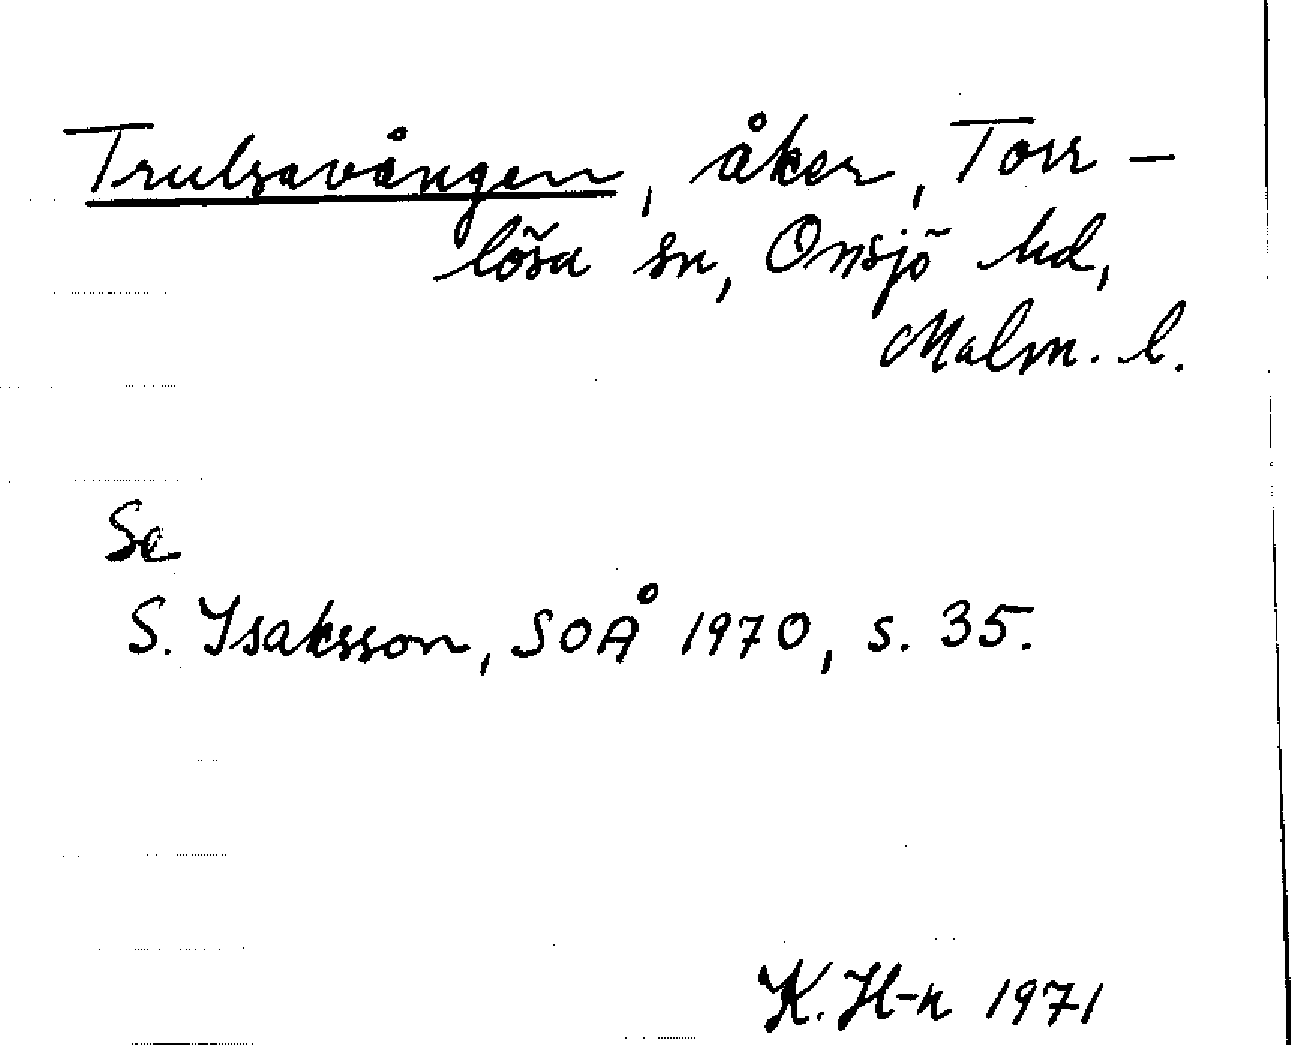 Trulsavången, åker, Torr-
lösa sn, Onsjö hd,
Malm. l.
Se
S. Isaksson, SOÅ 1970, s. 35.
K. H-n 1971